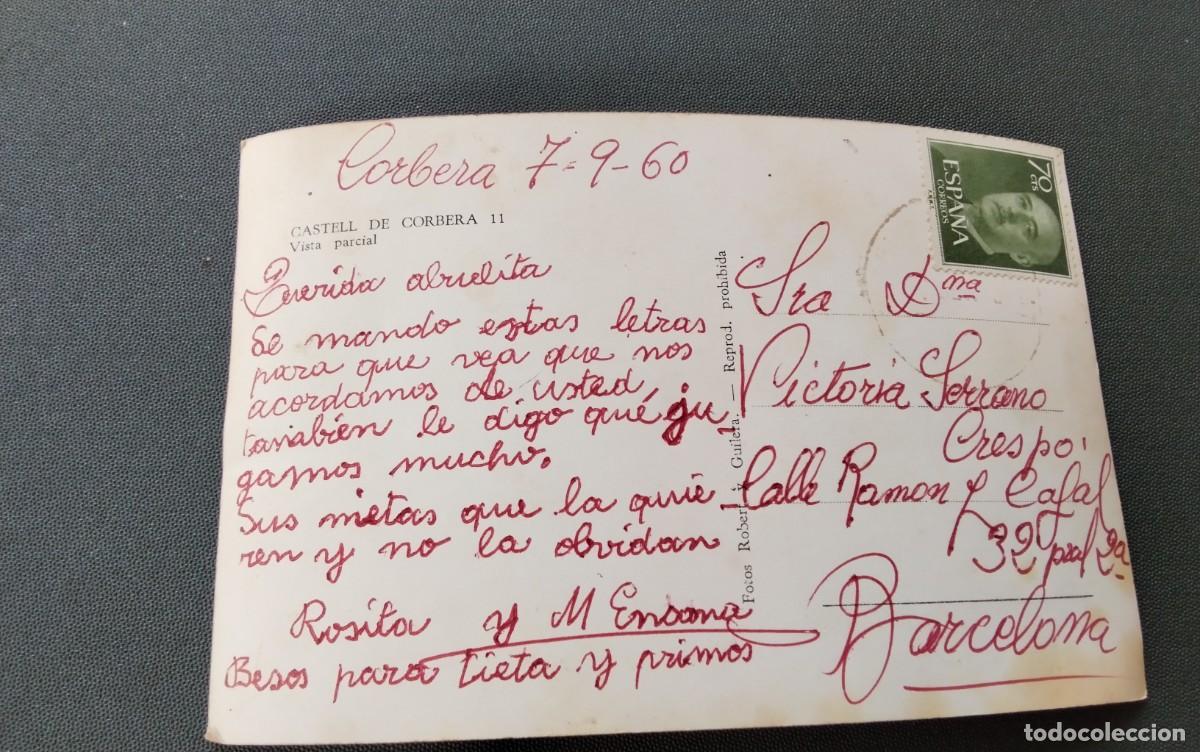 Corbera 7-9-60
CASTELL DE CORBERA 11
Vista parcial
Querida abuelita
Le mando estas letras
para que vea que nos
acordamos de usted,
también le digo qué ju
gamos mucho.
Sus nietas que la quie
ren y no la olvidan
Rosita y M
Besos para tieta y primos
Fotos Robert y Guilera. — Reprod. prohibida
70 cts
ESPAÑA
CORREOS
Sra Dña
Victoria Serrano
Crespo
Calle Ramon y Cajal
32 pral 2a
Barcelona
todocoleccion